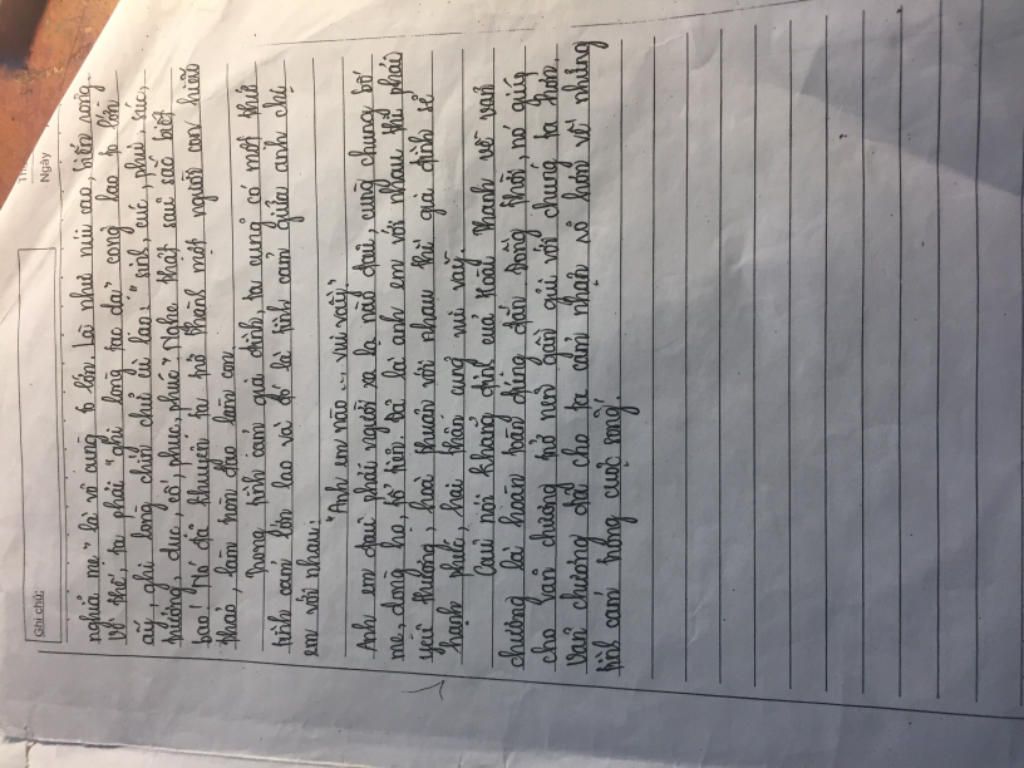 Ghi chú:
Ngày
nghĩa mẹ" là vô cùng to lớn. Lại như núi cao, biển rộng
Vì thế, ta phải "ghi lòng tạc dạ" công lao to lớn
ấy, ghi lòng chín chữ cù lao: "sinh, cúc, phủ, súc,
trưởng, dục, cố, phục, phúc". Nghe thật sâu sắc biết
bao! Nó đã khuyên ta trở thành một người con hiếu
thảo, làm tròn đạo làm con
Trong tình cảm gia đình, ta cũng có một thứ
tình cảm lớn lao và đó là tình cảm giữa anh chị
em với nhau:
"Anh em nào ... vui vầy"
Anh em đâu phải người xa lạ nào đâu, cũng chung bố
mẹ, dòng họ, tổ tiên. Đã là anh em với nhau thì phải
yêu thương, hoà thuận với nhau thì gia đình sẽ
hạnh phúc, hai thân cũng vui vầy.
Câu nói khẳng định của Hoài Thanh về văn
chương là hoàn toàn đúng đắn. Đồng thời, nó giúp
cho văn chương trở nên gần gũi với chúng ta hơn.
Văn chương đã cho ta cảm nhận rõ hơn về những
tình cảm trong cuộc sống.